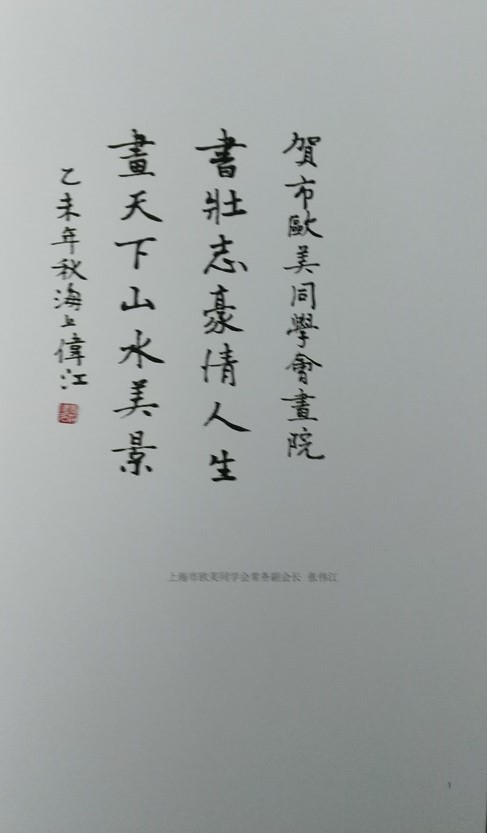 賀市歐美同學會畫院
書壯志豪情人生
畫天下山水美景
乙未年秋海上偉江
上海市欧美同学会常务副会长 张伟江
1